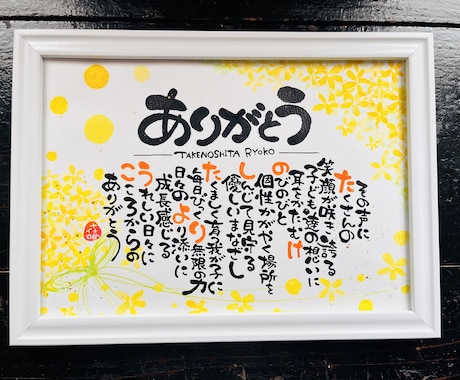 ありがとう
TAKENOSHITA RYOKO
その声に
たくさんの
笑顔が咲き誇る
子ども達の想いに
耳をかたむけ
のびのびと
個性かがやく場所を
しんじて見守る
優しいまなざし
たくましく育つ我が子に
毎日ひびく無限の力
日々のより添いに
成長感じる
うれしい日々に
こころからの
ありがとう